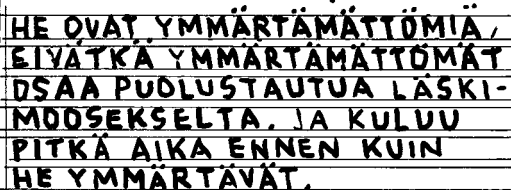 HE OVAT YMMÄRTÄMÄTTÖMIÄ,
EIVÄTKÄ YMMÄRTÄMÄTTÖMÄT
OSAA PUOLUSTAUTUA LÄSKI-
MOOSEKSELTA. JA KULUU
PITKÄ AIKA ENNEN KUIN
HE YMMÄRTÄVÄT.